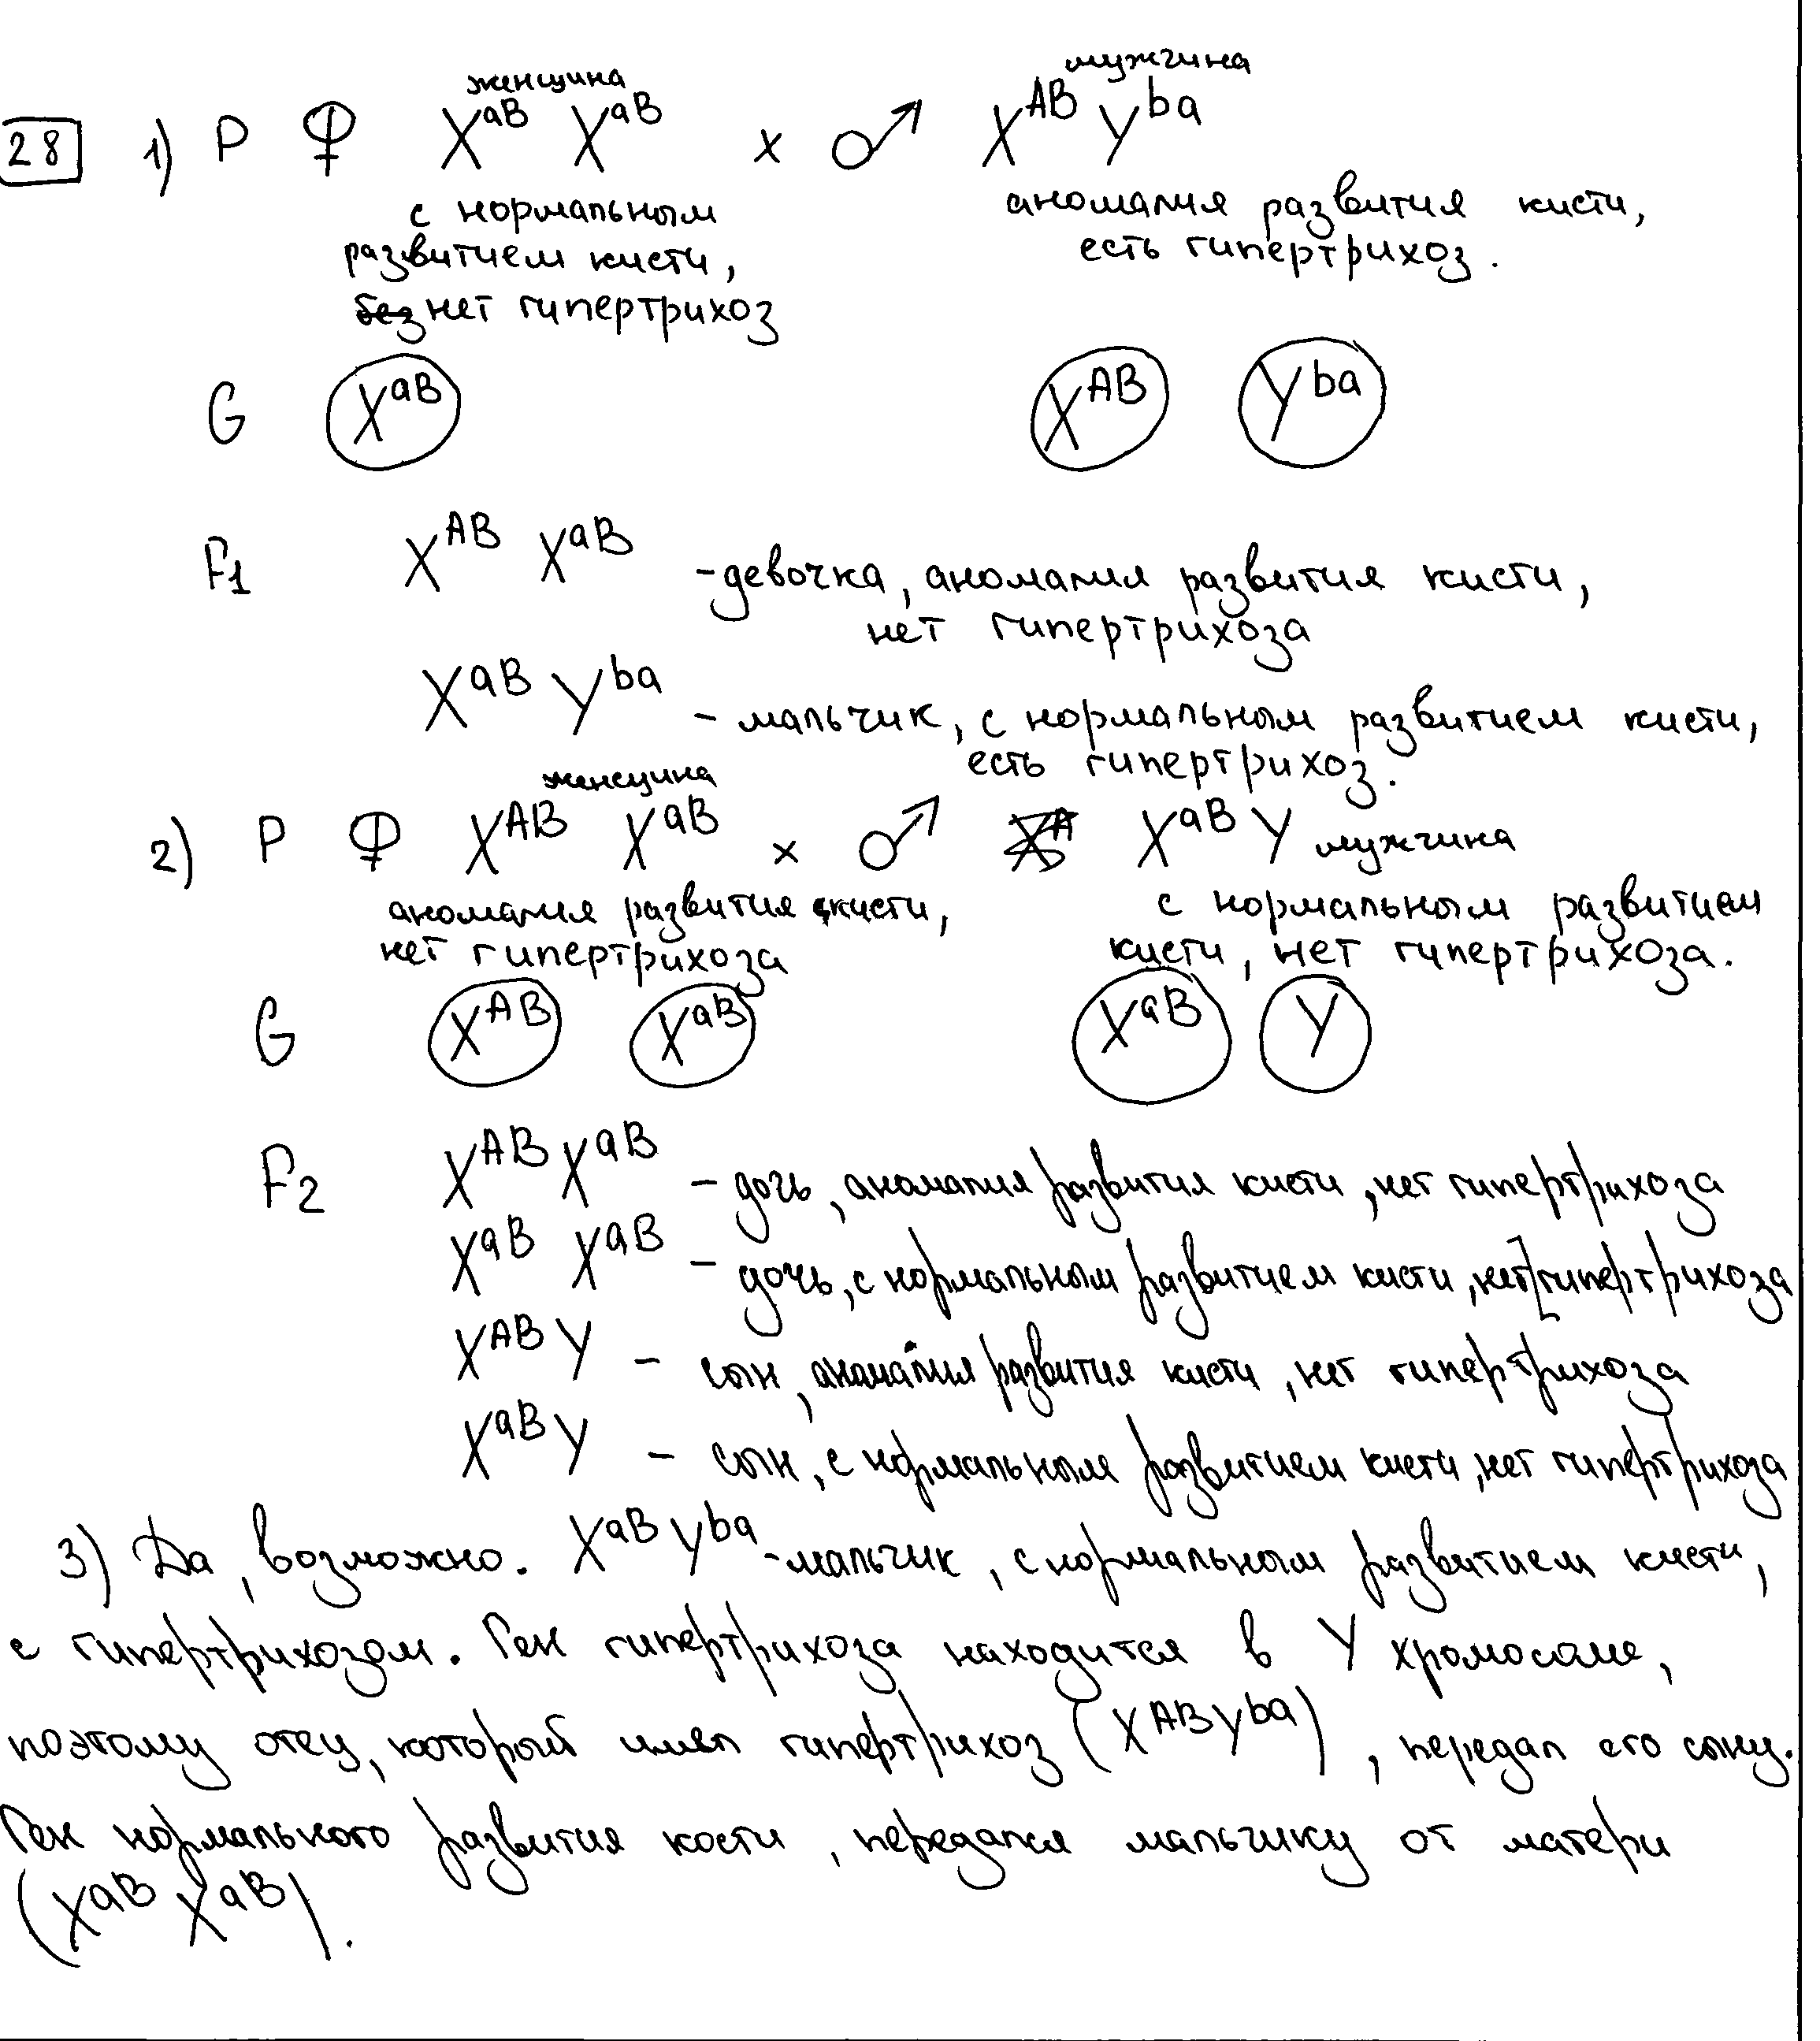 женщина мужчина
28 1) P ♀ X^aB X^aB x ♂ X^AB Y^ba
с нормальным аномалия развития кисти,
развитием кисти, есть гипертрихоз.
без нет гипертрихоз
G X^aB X^AB Y^ba
F1 X^AB X^aB - девочка, аномалия развития кисти,
нет гипертрихоза
X^aB Y^ba - мальчик, с нормальным развитием кисти,
есть гипертрихоз.
женщина
2) P ♀ X^AB X^aB x ♂ X^aB Y мужчина
аномалия развития кисти, с нормальным развитием
нет гипертрихоза кисти, нет гипертрихоза.
G X^AB X^aB X^aB Y
F2 X^AB X^aB - дочь, аномалия развития кисти, нет гипертрихоза
X^aB X^aB - дочь, с нормальным развитием кисти, нет гипертрихоза
X^AB Y - сын, аномалия развития кисти, нет гипертрихоза
X^aB Y - сын, с нормальным развитием кисти, нет гипертрихоза
3) Да, возможно. X^aB Y^ba - мальчик, с нормальным развитием кисти,
с гипертрихозом. Ген гипертрихоза находится в Y хромосоме,
поэтому отец, который имел гипертрихоз (X^AB Y^ba), передал его сыну.
Ген нормального развития кости, передался мальчику от матери
(X^aB X^aB).